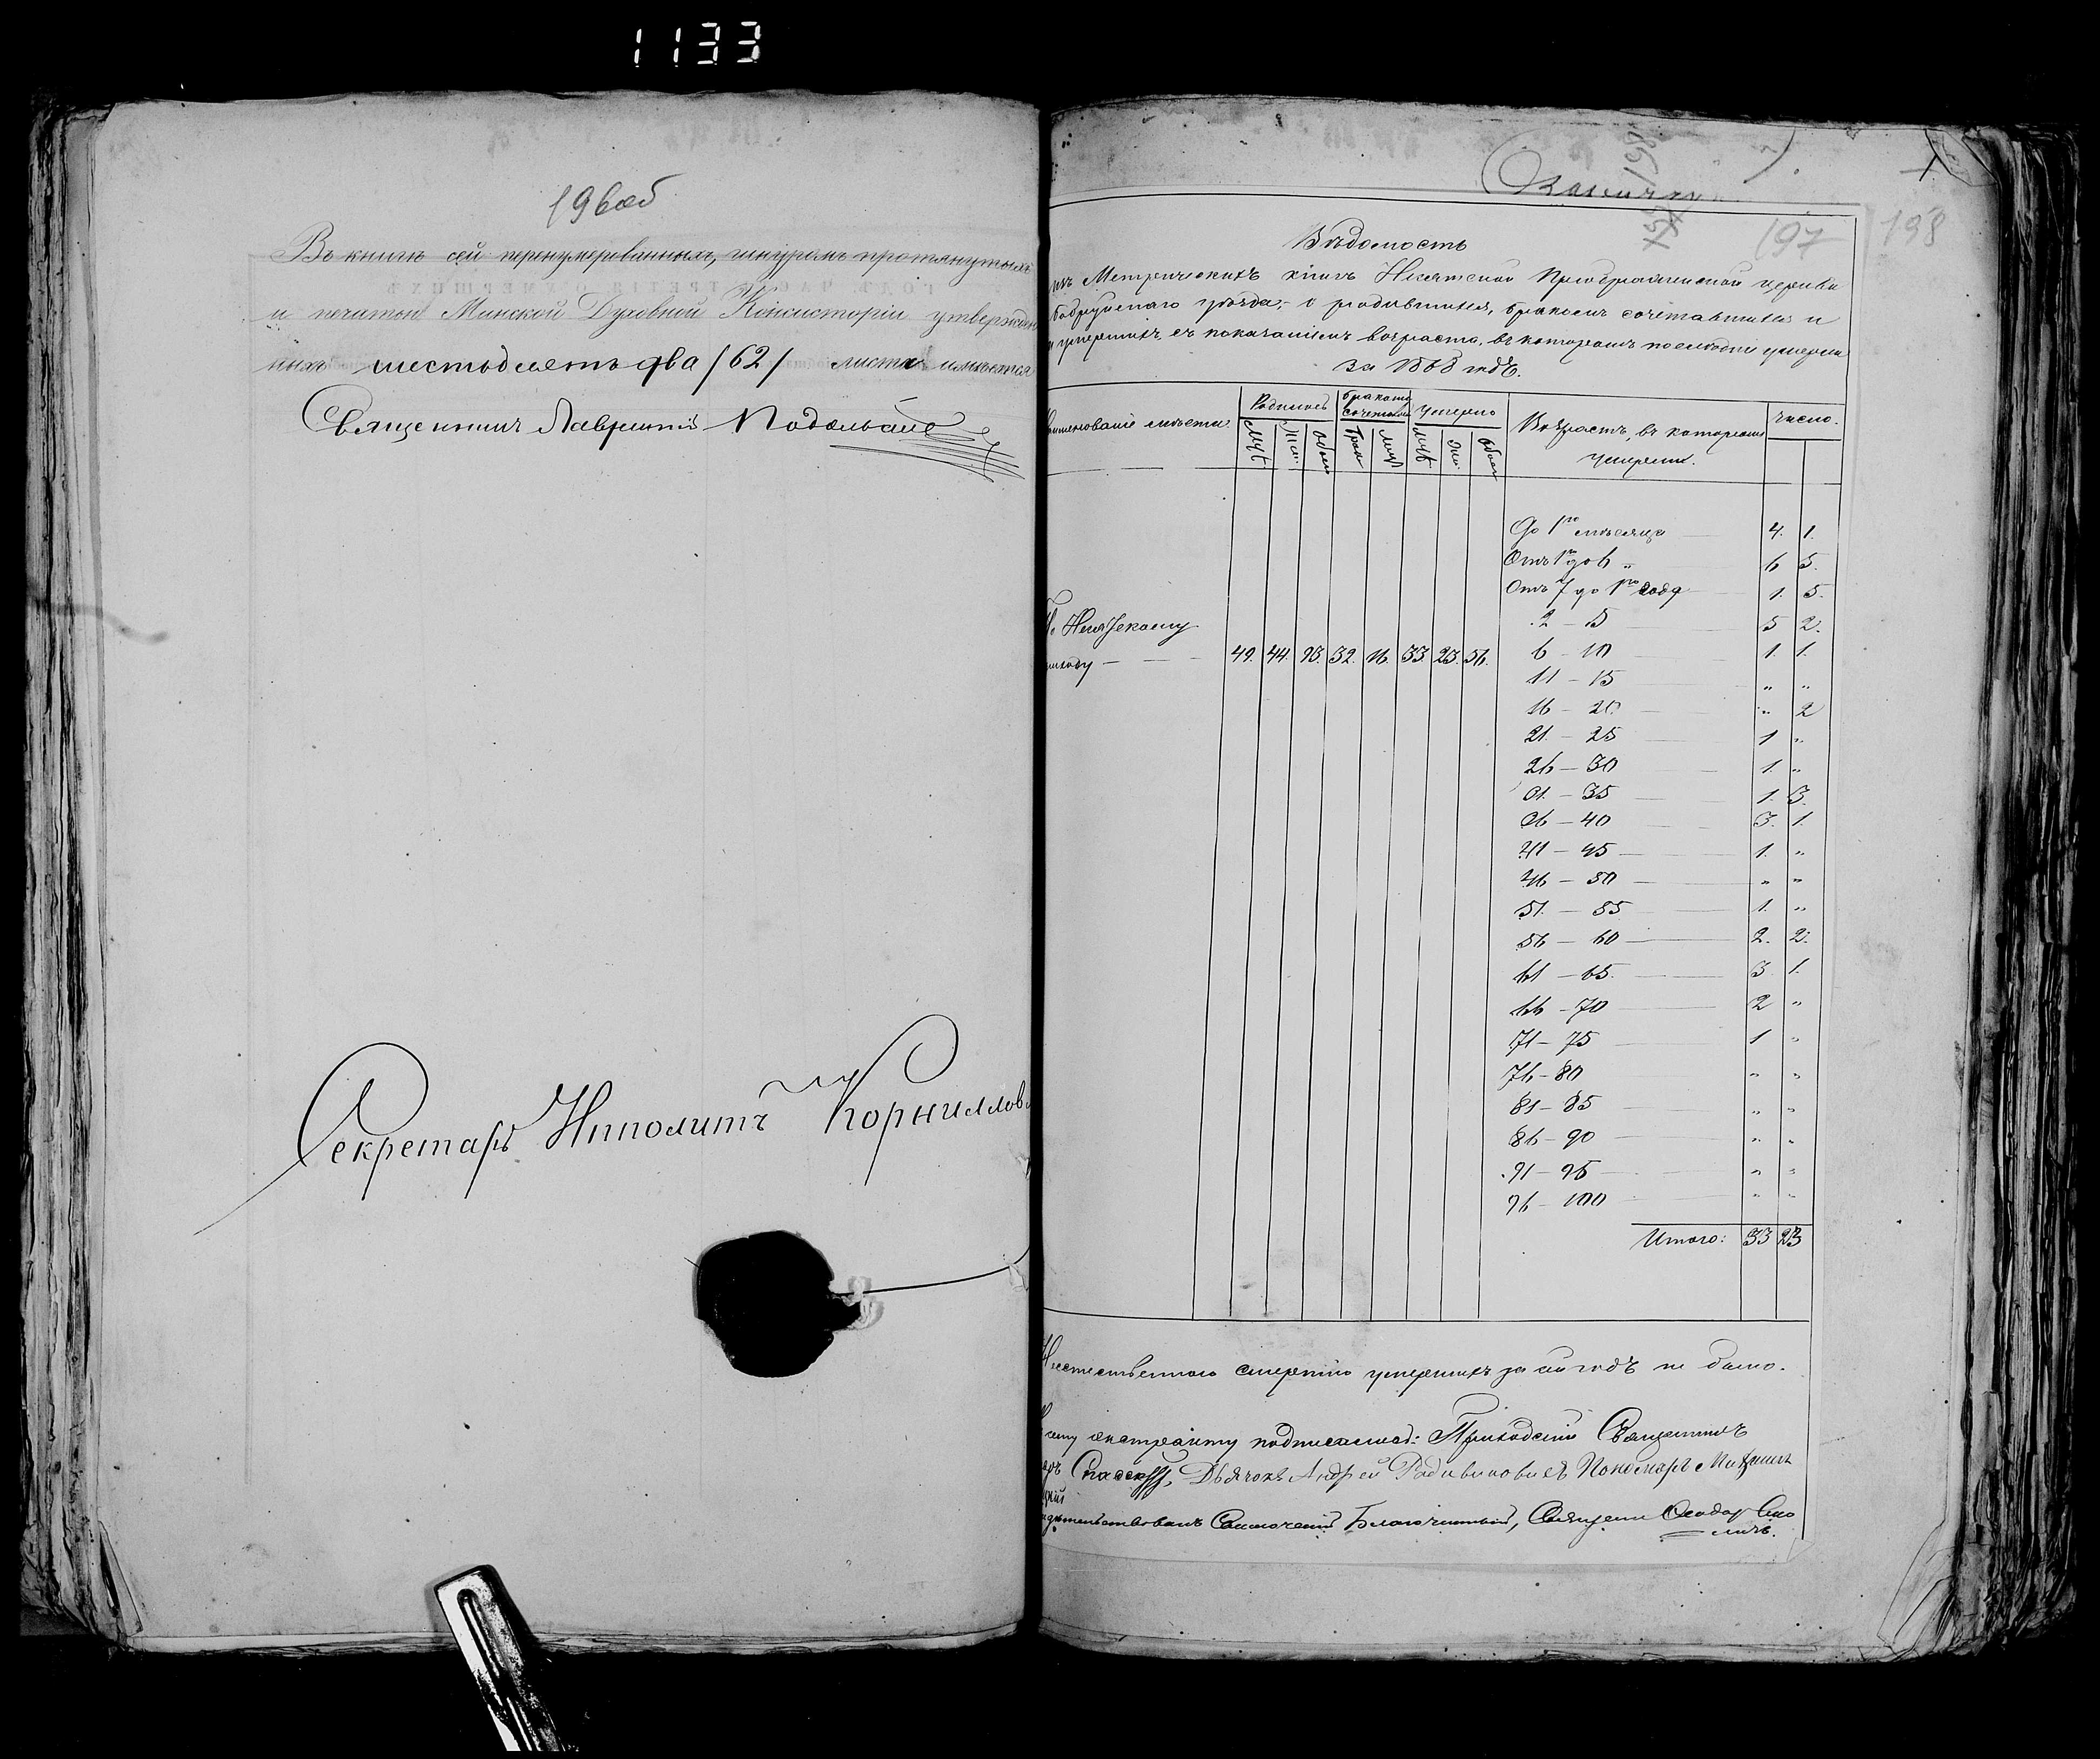 1133
196об
Въ книгѣ сей перенумерованныхъ, шнуромъ протянутыхъ
и печатью Минской Духовной Консисторіи утвержден
ныхъ шестьдесятъ два /62/ листа имѣется
Священникъ Лаврентій
Секретарь Ипполитъ Корниллов
198
197 198
Вѣдомость
изъ Метрическихъ книгъ Несятской Преображенской церкви
Бобруйскаго уѣзда, о родившихся, бракомъ сочетавшихся и
умершихъ, съ показаніемъ возраста, въ которомъ послѣдніе умерли
за 1868 годъ.
Родилось Бракомъ сочетались Умерло Возрастъ, въ которомъ умерли. Число.
Муж Жен. Обоего Муж Жен. Обоего
До 1го мѣсяца 4. 1.
Отъ 1го до 6 „ 6 5.
Отъ 7 до 1го года 1. 5.
2 – 5 5 2.
6 – 10 1. 1.
приходу – – – 49. 44. 93. 32. 16. 33. 23. 56.
11 – 15 „ „
16 – 20 „ 2
21 – 25 1 „
26 – 30 1. „
31 – 35 1. 3.
36 – 40 3. 1.
41 – 45 1. „
46 – 50 „ „
51 – 55 1. „
56 – 60 2. 2.
61 – 65 3 1.
66 – 70 2 „
71 – 75 1 „
76 – 80 „ „
81 – 85 „ „
86 – 90 „ „
91 – 95 „ „
96 – 100 „ „
Итого: 33 23
Неестественною смертію умершихъ за сей годъ не было.
сему экстракту подписались: Приходскій Священникъ
Дьячокъ Андрей Родивиновичъ Пономарь
Благочинный, Священ Ѳеодор Смо
личъ.